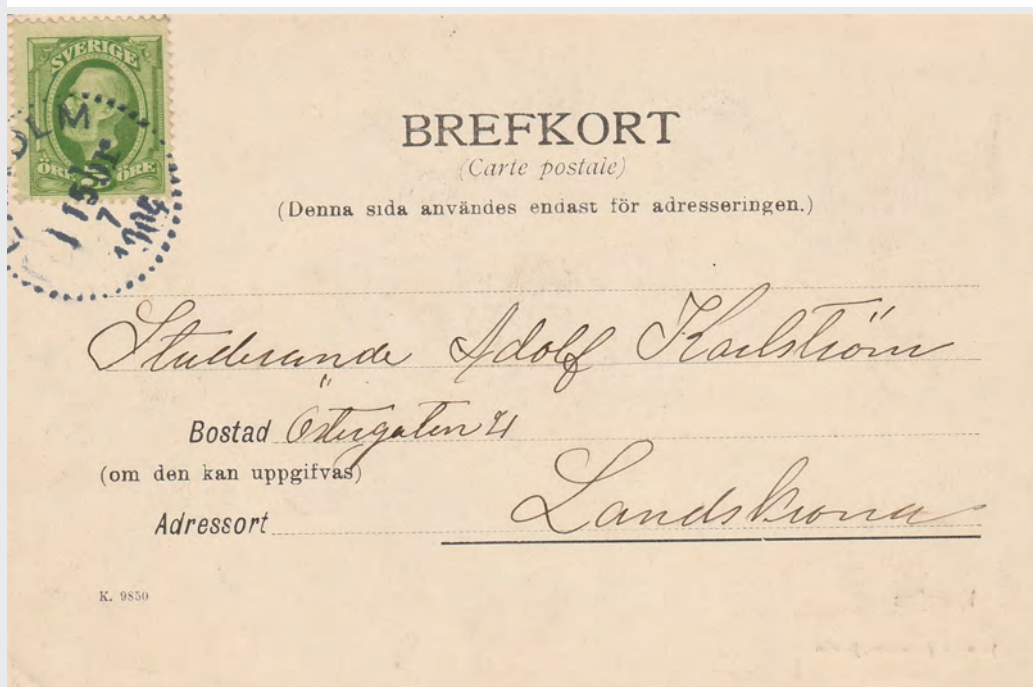 SVERIGE
ÖRE ÖRE
BREFKORT
(Carte postale)
(Denna sida användes endast för adresseringen.)
Studerande Adolf Karlström
Bostad Östergatan
(om den kan uppgifvas)
Adressort Landskrona
K. 9850